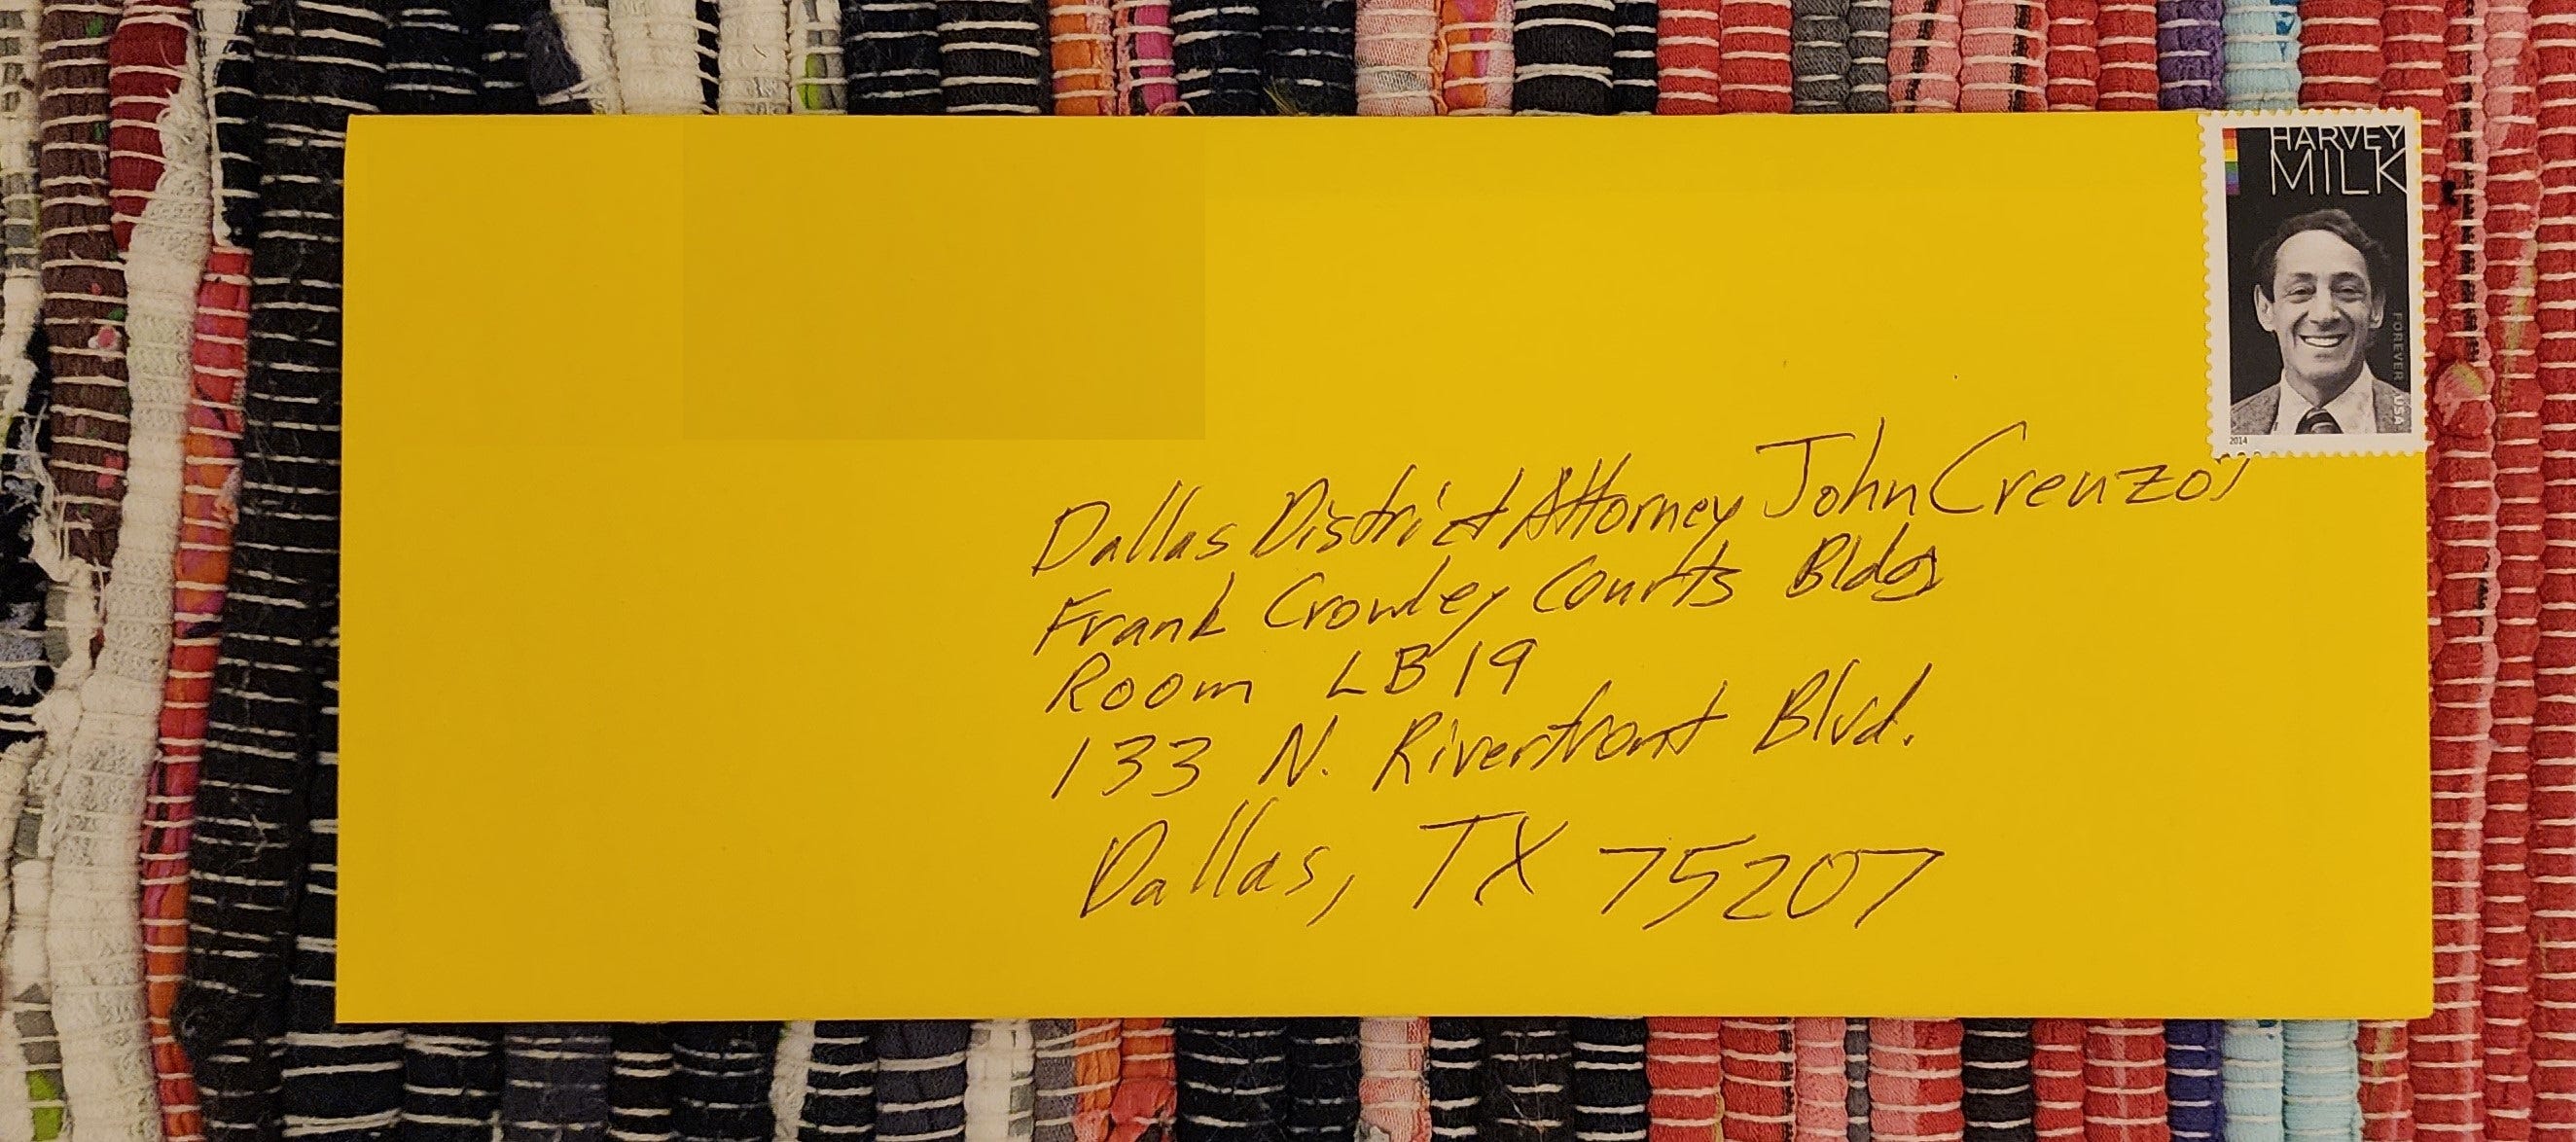 HARVEY
MILK
FOREVER USA
2014
Dallas District Attorney John Creuzot
Frank Crowley Courts Bldg
Room LB19
133 N. Riverfront Blvd.
Dallas, TX 75207